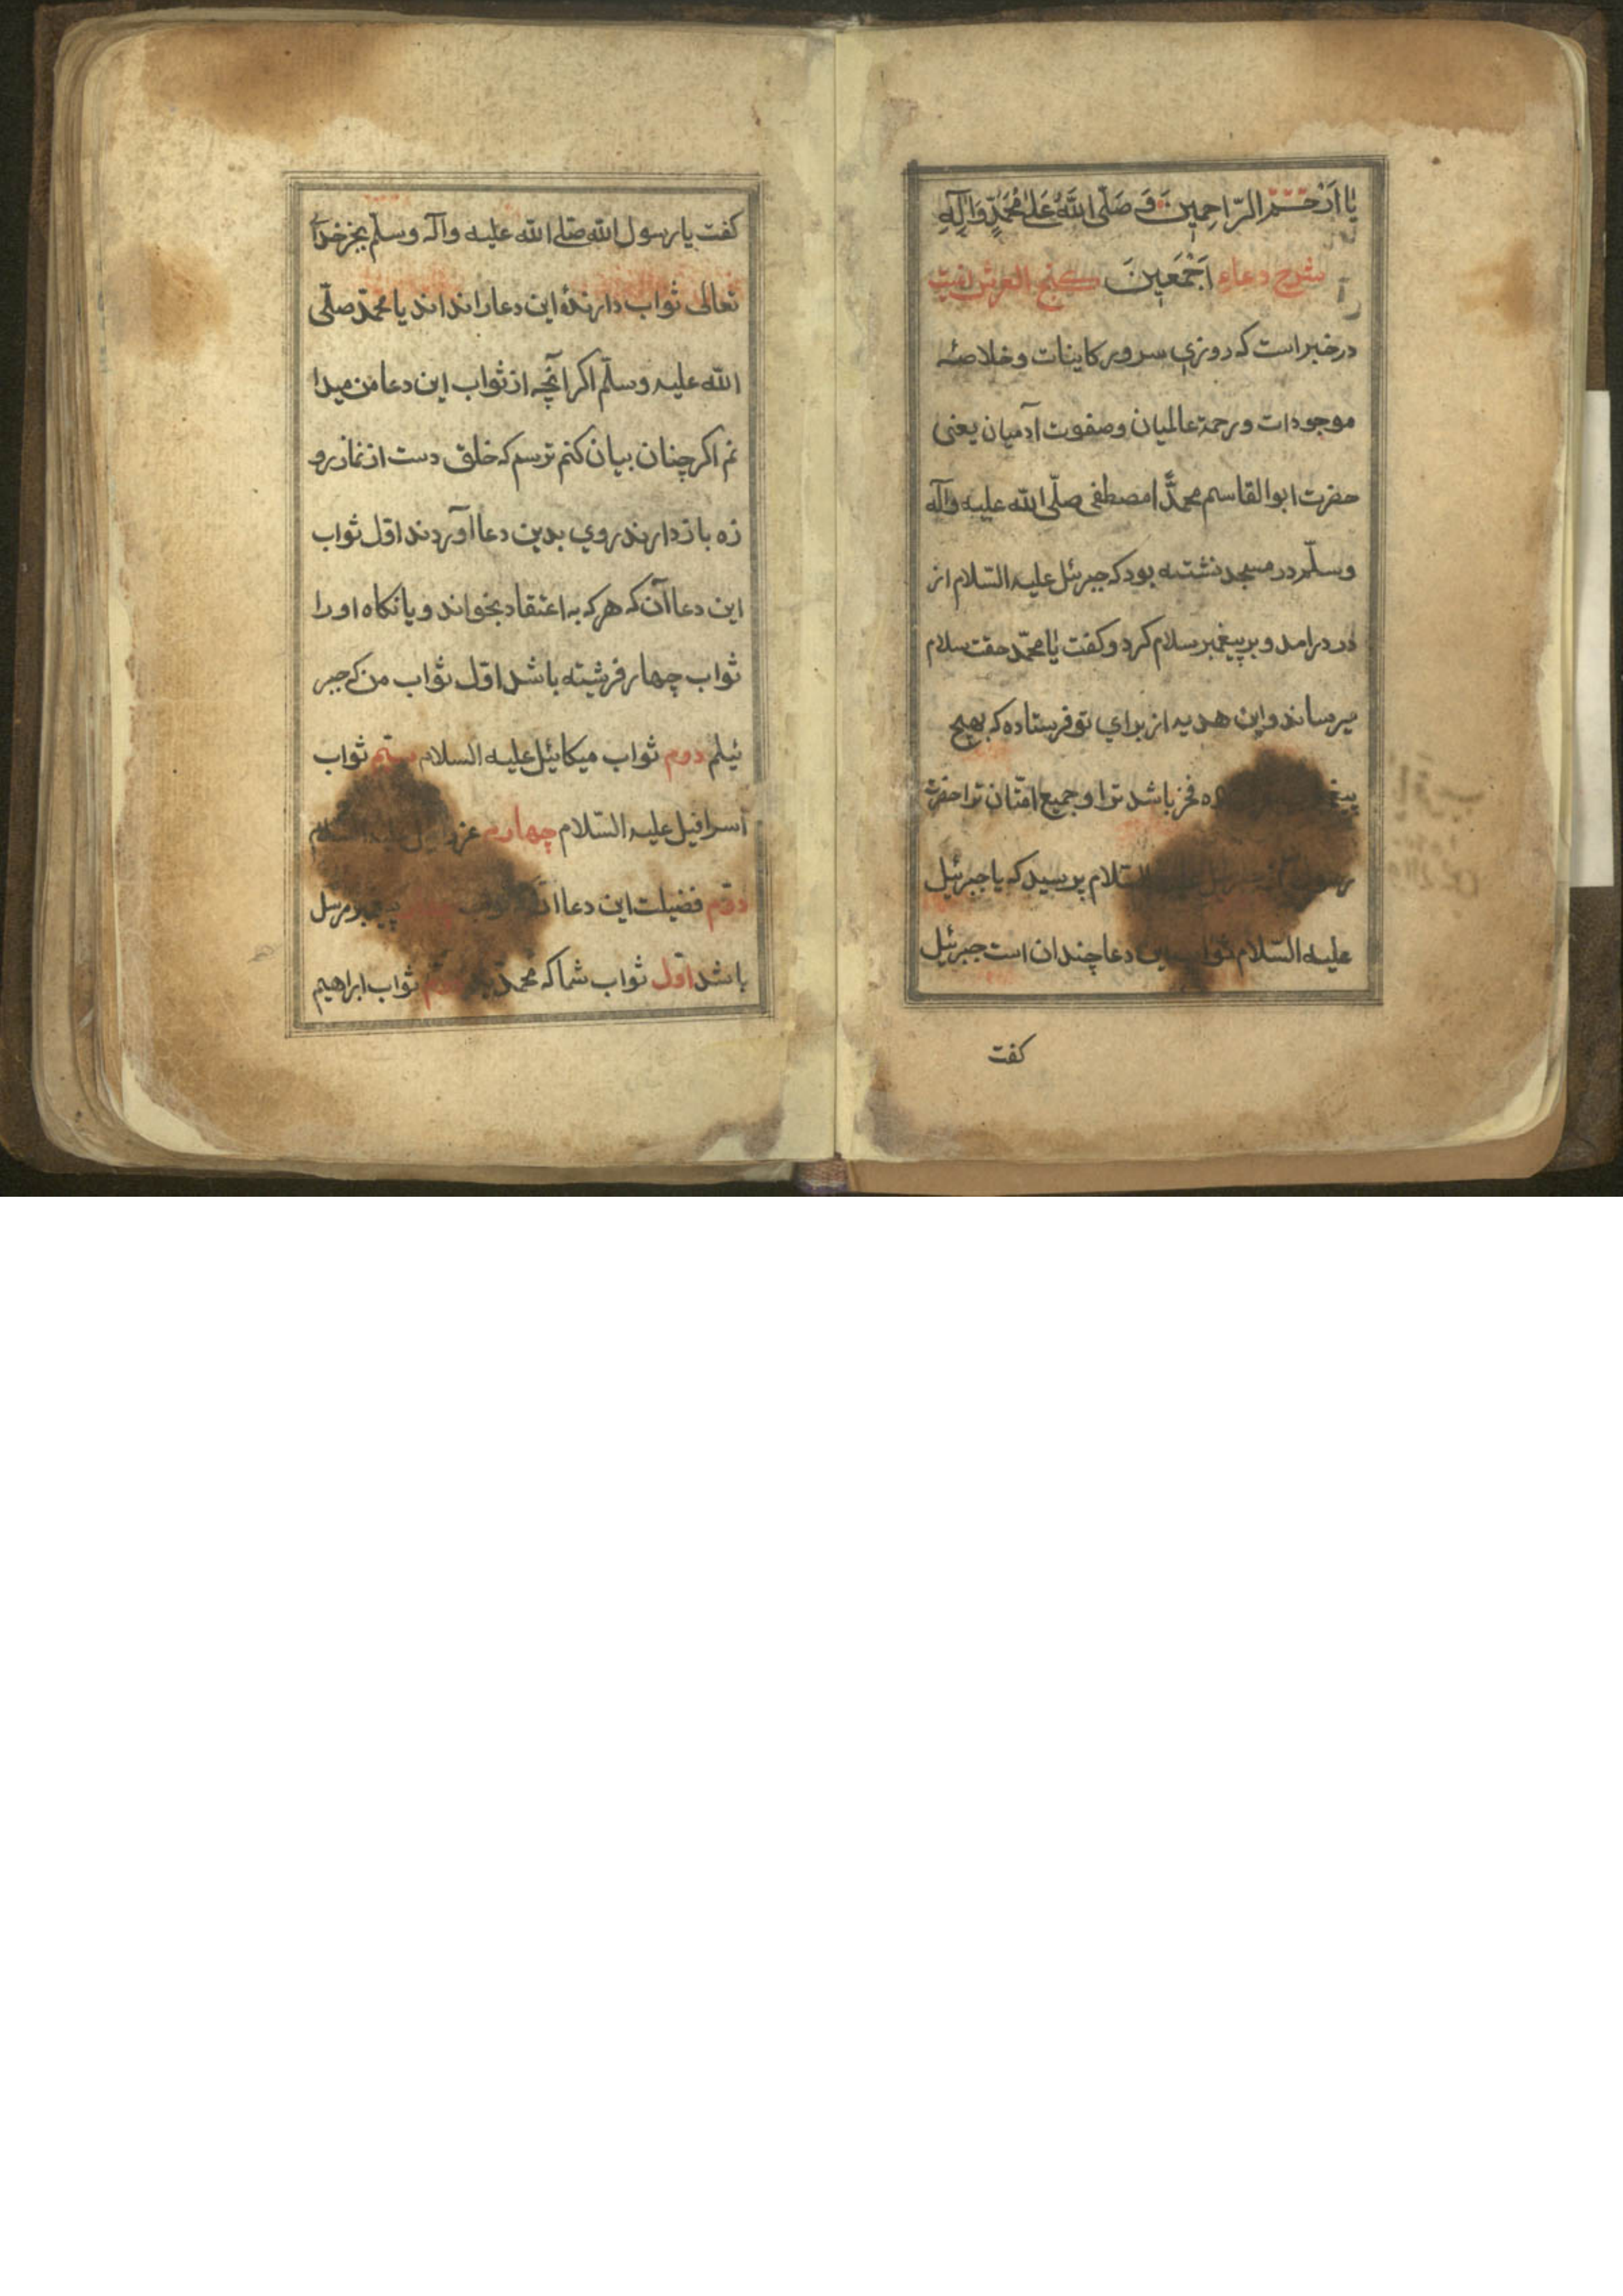 یا اَرْحَمَ الرّاحِمینَ وَ صَلَّی اللهُ عَلیٰ مُحَمَّدٍ وَآلِهِ
شرح دعاء اَجْمَعینَ کنج العرش
در خبر است که روزی سرور کاینات و خلاصهٔ
موجودات و رحمة عالمیان و صفوت آدمیان یعنی
حضرت ابوالقاسم محمّد امصطفی صلّی الله علیه وآله
وسلّم در مسجد نشسته بود که جبرئل علیه السّلام از
در درامد و بر پیغمبر سلام کرد و کفت یا محمّد حقت سلام
میرساند و این هدیه از برای تو فرستاده که بهیچ
فخر باشد ترا و جمیع امّتان ترا حضرت
السّلام پرسید که یا جبرئیل
علیه السّلام ثواب این دعا چندان است جبرئیل
کفت
کفت یا رسول الله صلی الله علیه وآله وسلّم بجز خدا
تعالی ثواب دارندهٔ این دعا را نداند یا محمّد صلّی
الله علیه وسلّم اکر آنچه از ثواب این دعا من میدا
نم اکر چنان بیان کنم ترسم که خلق دست از نماز رو
زه باز دارند روی بدین دعا آوردند اوّل ثواب
این دعا آن که هر که به اعتقاد بخواند و یا نکاه او را
ثواب چهار فرشته باشد اوّل ثواب من که جبر
ئیلم دوم ثواب میکائیل علیه السلام سیّم ثواب
اسرافیل علیه السّلام چهارم عزرائیل علیه السّلام
دوّم فضیلت این دعا پیغمبر مرسل
باشد اوّل ثواب شما که محمّد ثواب ابراهیم